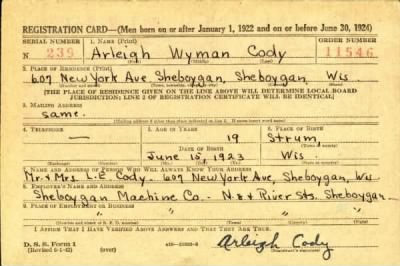 REGISTRATION CARD—(Men born on or after January 1, 1922 and on or before June 30, 1924)
SERIAL NUMBER 1. NAME (Print) ORDER NUMBER
N 239 Arleigh Wyman Cody 11546
2. PLACE OF RESIDENCE (Print)
607 New York Ave. Sheboygan, Sheboygan Wis
[THE PLACE OF RESIDENCE GIVEN ON THE LINE ABOVE WILL DETERMINE LOCAL BOARD
JURISDICTION; LINE 2 OF REGISTRATION CERTIFICATE WILL BE IDENTICAL]
3. MAILING ADDRESS
same.
[Mailing address if other than place indicated on line 2. If same insert word same]
4. TELEPHONE 5. AGE IN YEARS 6. PLACE OF BIRTH
— 19 Strum,
DATE OF BIRTH
June 15, 1923 Wis
7. NAME AND ADDRESS OF PERSON WHO WILL ALWAYS KNOW YOUR ADDRESS
Mr. & Mrs. L.E. Cody. 607 New York Ave, Sheboygan, Wis
8. EMPLOYER'S NAME AND ADDRESS
Sheboygan Machine Co. N. & River Sts. Sheboygan
9. PLACE OF EMPLOYMENT OR BUSINESS
" " " " "
I AFFIRM THAT I HAVE VERIFIED ABOVE ANSWERS AND THAT THEY ARE TRUE.
D. S. S. Form 1
(Revised 6-1-42) (over) Arleigh Cody